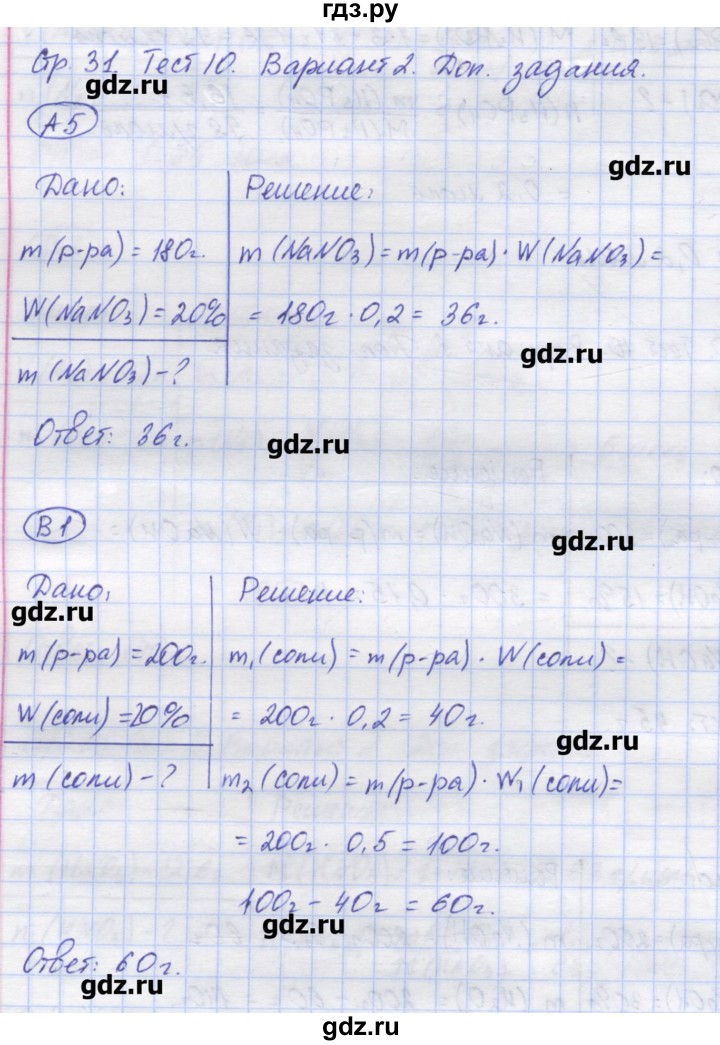 гдз.ру
Стр. 31 Тест 10. Вариант 2. Доп. задания.
А5
gdz.ru
Дано: Решение:
m(р-ра) = 180г. m(NaNO₃) = m(р-ра) · W(NaNO₃) =
W(NaNO₃) = 20% = 180г · 0,2 = 36г.
gdz.ru
m(NaNO₃) - ?
Ответ: 36г.
gdz.ru
В1
gdz.ru
Дано: Решение:
gdz.ru
m(р-ра) = 200г. m₁(соли) = m(р-ра) · W(соли) =
W(соли) = 20% = 200г · 0,2 = 40г.
gdz.ru
m(соли) - ? m₂(соли) = m(р-ра) · W₁(соли) =
= 200г · 0,5 = 100г.
100г - 40г = 60г.
gdz.ru
Ответ: 60г.
gdz.ru
gdz.ru